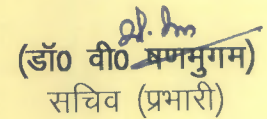 (डॉ0 वी0 षणमुगम)
सचिव (प्रभारी)